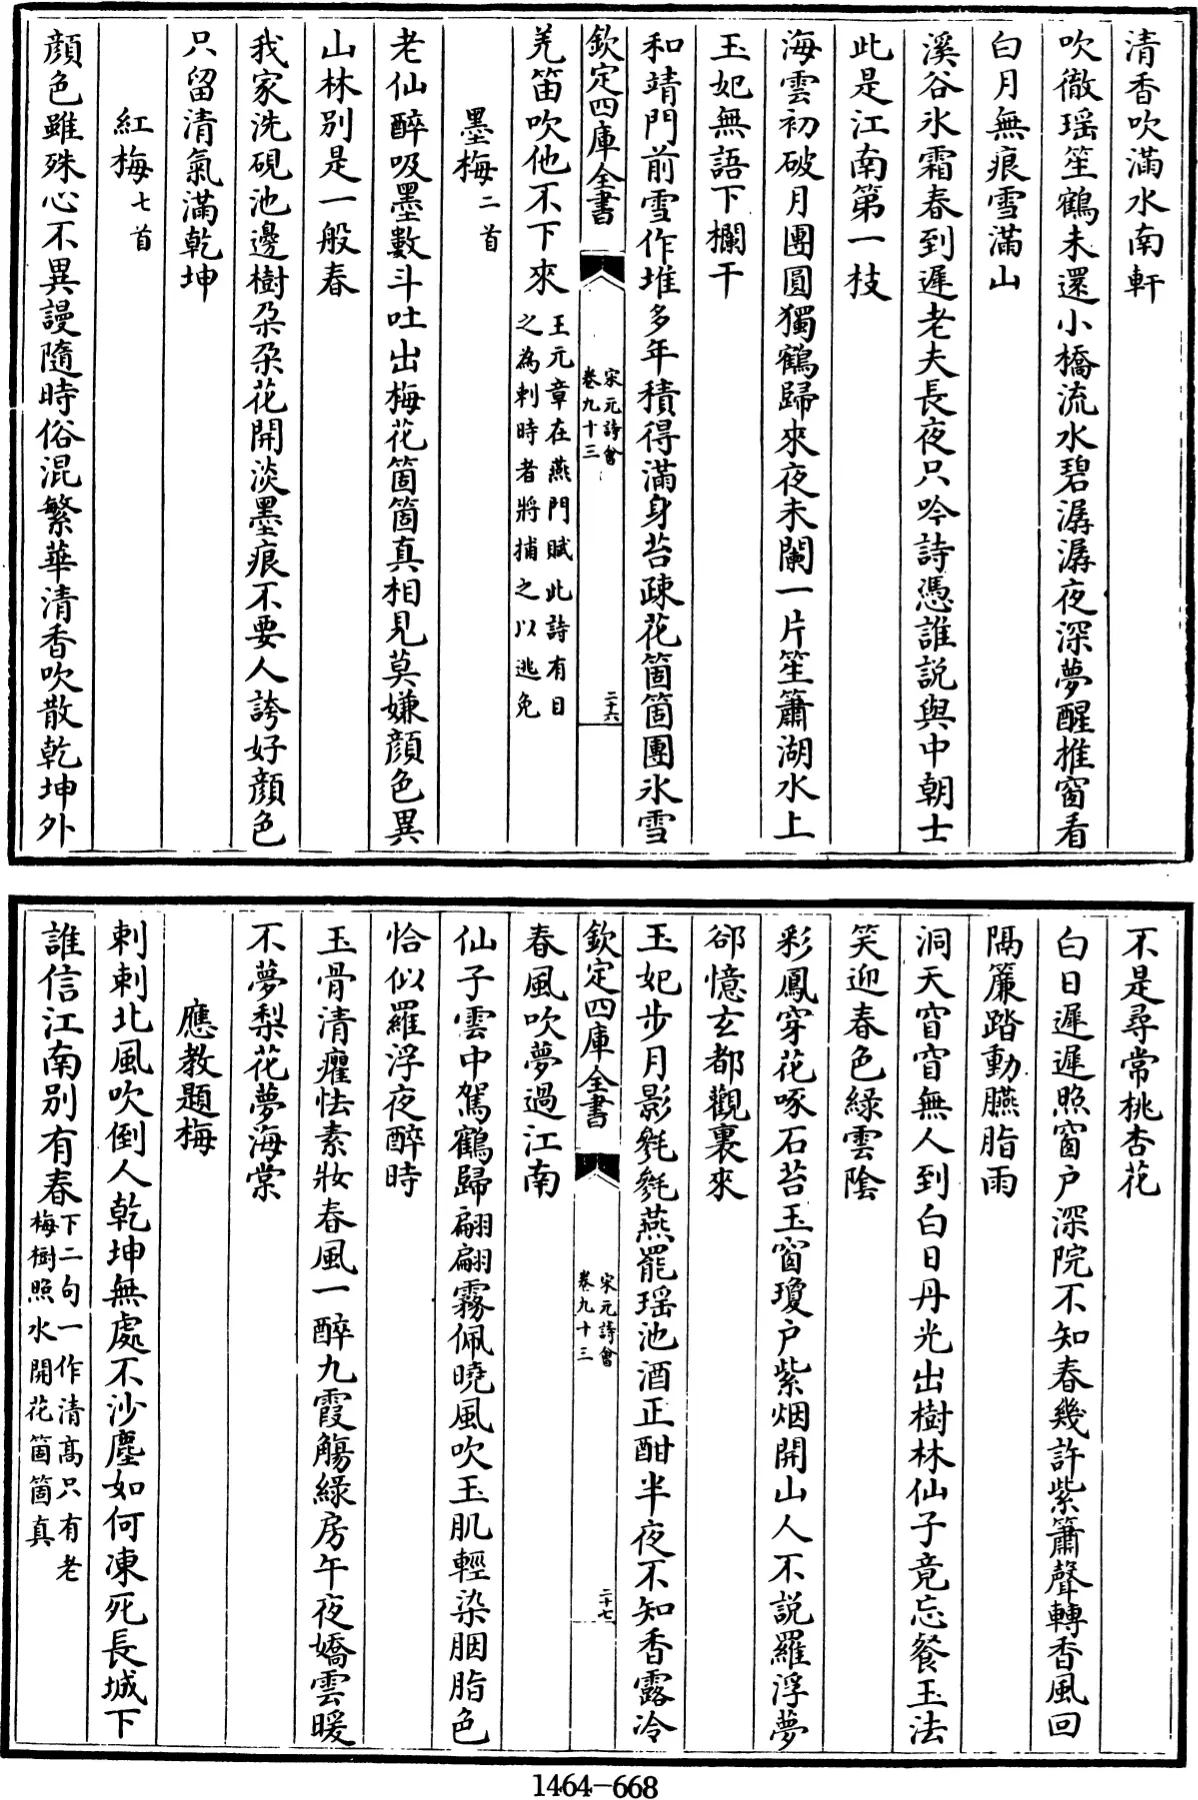 清香吹滿水南軒
吹徹瑶笙鶴未還小橋流水碧潺潺夜深夢醒推窗看
白月無痕雪滿山
溪谷氷霜春到遲老夫長夜只吟詩憑誰説與中朝士
此是江南第一枝
海雲初破月團圓獨鶴歸來夜未闌一片笙簫湖水上
玉妃無語下欄干
和靖門前雪作堆多年積得滿身苔疎花箇箇團氷雪
欽定四庫全書
宋元詩會
卷九十三
二十六
羌笛吹他不下來
王元章在燕門賦此詩有目
之為刺時者將捕之以逃免
墨梅二首
老仙醉吸墨數斗吐出梅花箇箇真相見莫嫌顔色異
山林別是一般春
我家洗硯池邊樹朶朶花開淡墨痕不要人誇好顔色
只留清氣滿乾坤
紅梅七首
顔色雖殊心不異謾隨時俗混繁華清香吹散乾坤外
不是尋常桃杏花
白日遲遲照窗户深院不知春幾許紫簫聲轉香風回
隔簾踏動臙脂雨
洞天窅窅無人到白日丹光出樹林仙子竟忘餐玉法
笑迎春色綠雲陰
彩鳳穿花啄石苔玉窗瓊户紫烟開山人不説羅浮夢
郤憶玄都觀裏來
玉妃步月影毿毿燕罷瑶池酒正酣半夜不知香露冷
欽定四庫全書
宋元詩會
卷九十三
二十七
春風吹夢過江南
仙子雲中駕鶴歸翩翩霧佩曉風吹玉肌輕染胭脂色
恰似羅浮夜醉時
玉骨清癯怯素妝春風一醉九霞觴綠房午夜嬌雲暖
不夢梨花夢海棠
應教題梅
刺刺北風吹倒人乾坤無處不沙塵如何凍死長城下
誰信江南別有春
下二句一作清髙只有老
梅樹照水開花箇箇真
1464-668